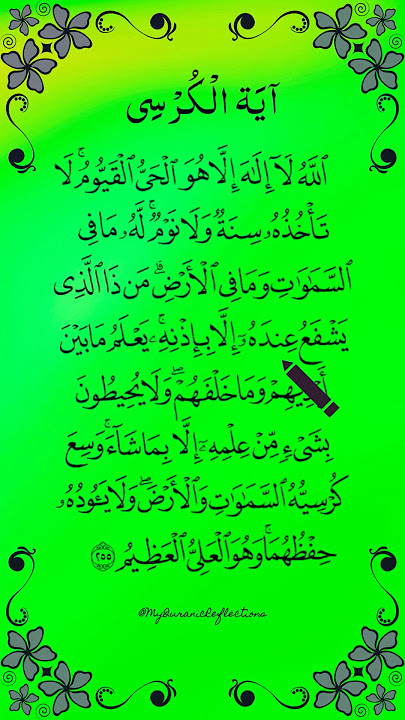 آيَة الْكُرْسِى
ٱللَّهُ لَآ إِلَٰهَ إِلَّا هُوَ ٱلْحَىُّ ٱلْقَيُّومُ ۚ لَا
تَأْخُذُهُۥ سِنَةٌ وَلَا نَوْمٌ ۚ لَّهُۥ مَا فِى
ٱلسَّمَٰوَٰتِ وَمَا فِى ٱلْأَرْضِ ۗ مَن ذَا ٱلَّذِى
يَشْفَعُ عِندَهُۥٓ إِلَّا بِإِذْنِهِۦ ۚ يَعْلَمُ مَا بَيْنَ
أَيْدِيهِمْ وَمَا خَلْفَهُمْ ۖ وَلَا يُحِيطُونَ
بِشَىْءٍ مِّنْ عِلْمِهِۦٓ إِلَّا بِمَا شَآءَ ۚ وَسِعَ
كُرْسِيُّهُ ٱلسَّمَٰوَٰتِ وَٱلْأَرْضَ ۖ وَلَا يَـُٔودُهُۥ
حِفْظُهُمَا ۚ وَهُوَ ٱلْعَلِىُّ ٱلْعَظِيمُ ٢٥٥
@MyQuranicReflections